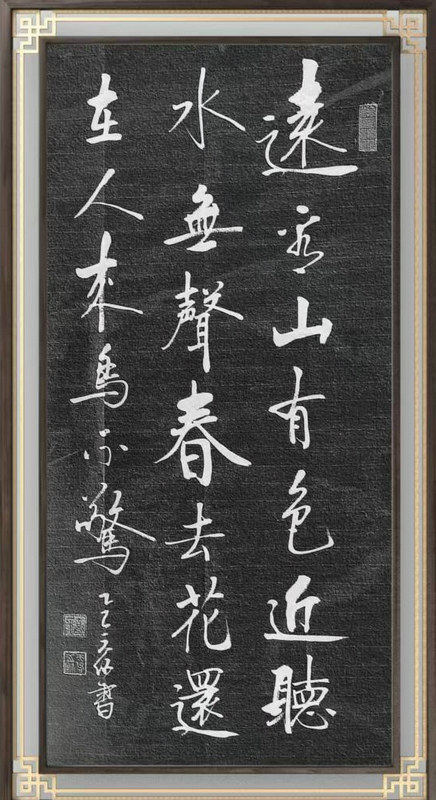 遠看山有色近聽
水無聲春去花還
在人來鳥不驚
乙巳 書